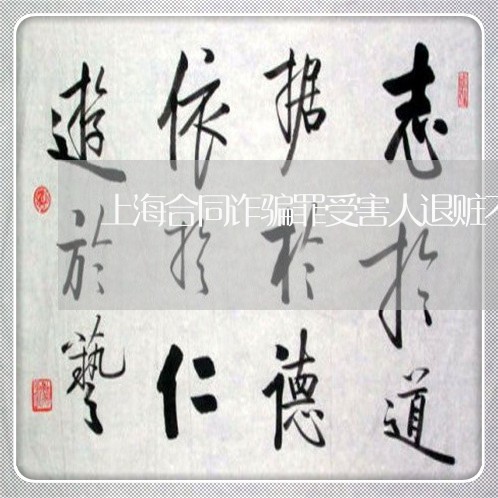 志於道
据於德
依於仁
遊於藝
上海合同诈骗罪受害人退赃